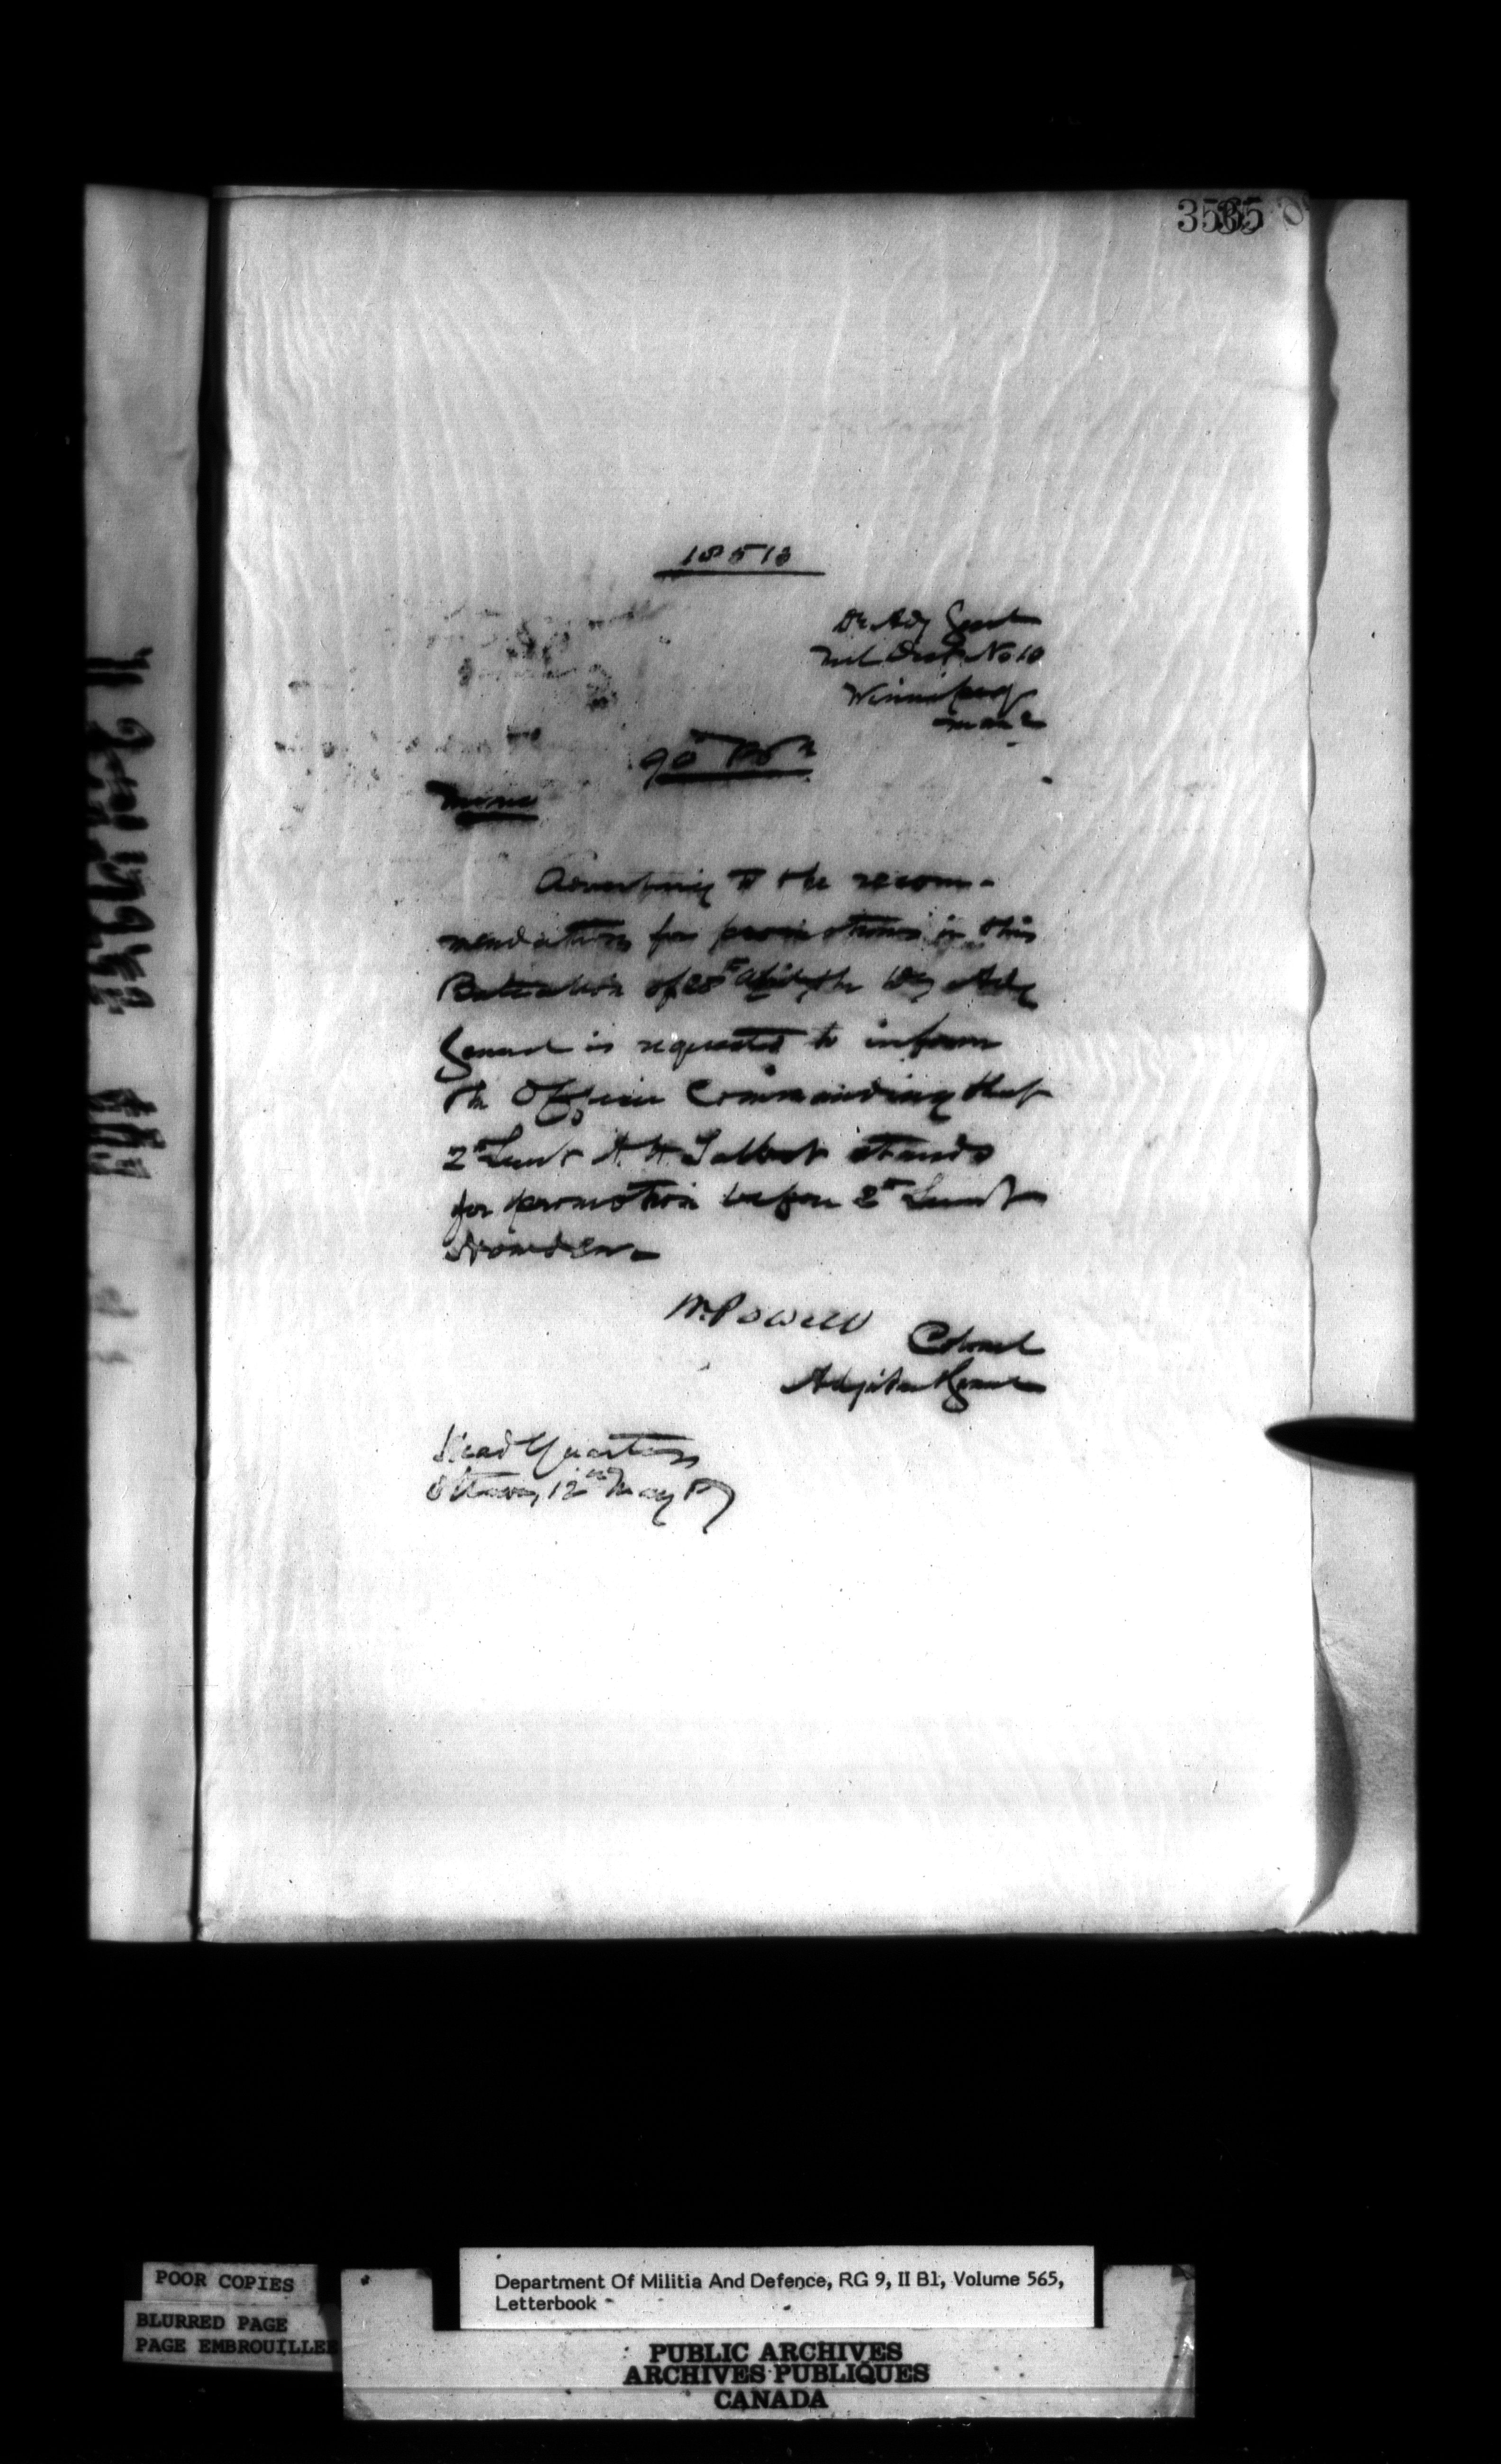 3535
18513
Dy Adj Genl
Mil Dist No 10
Winnipeg
90th Bn
Memo
Adverting to the recom-
mendations for promotions in this
Battalion of 28th April, the Dy Adj
General is requested to inform
the Officer Commanding that
2nd Lieut A. H. Talbot stands
for promotion before 2nd Lieut
Howden.
W. Powell Colonel
Adjutant General
Head Quarters
Ottawa, 12th May 87
POOR COPIES
BLURRED PAGE
PAGE EMBROUILLEE
Department Of Militia And Defence, RG 9, II B1, Volume 565,
Letterbook
PUBLIC ARCHIVES
ARCHIVES PUBLIQUES
CANADA